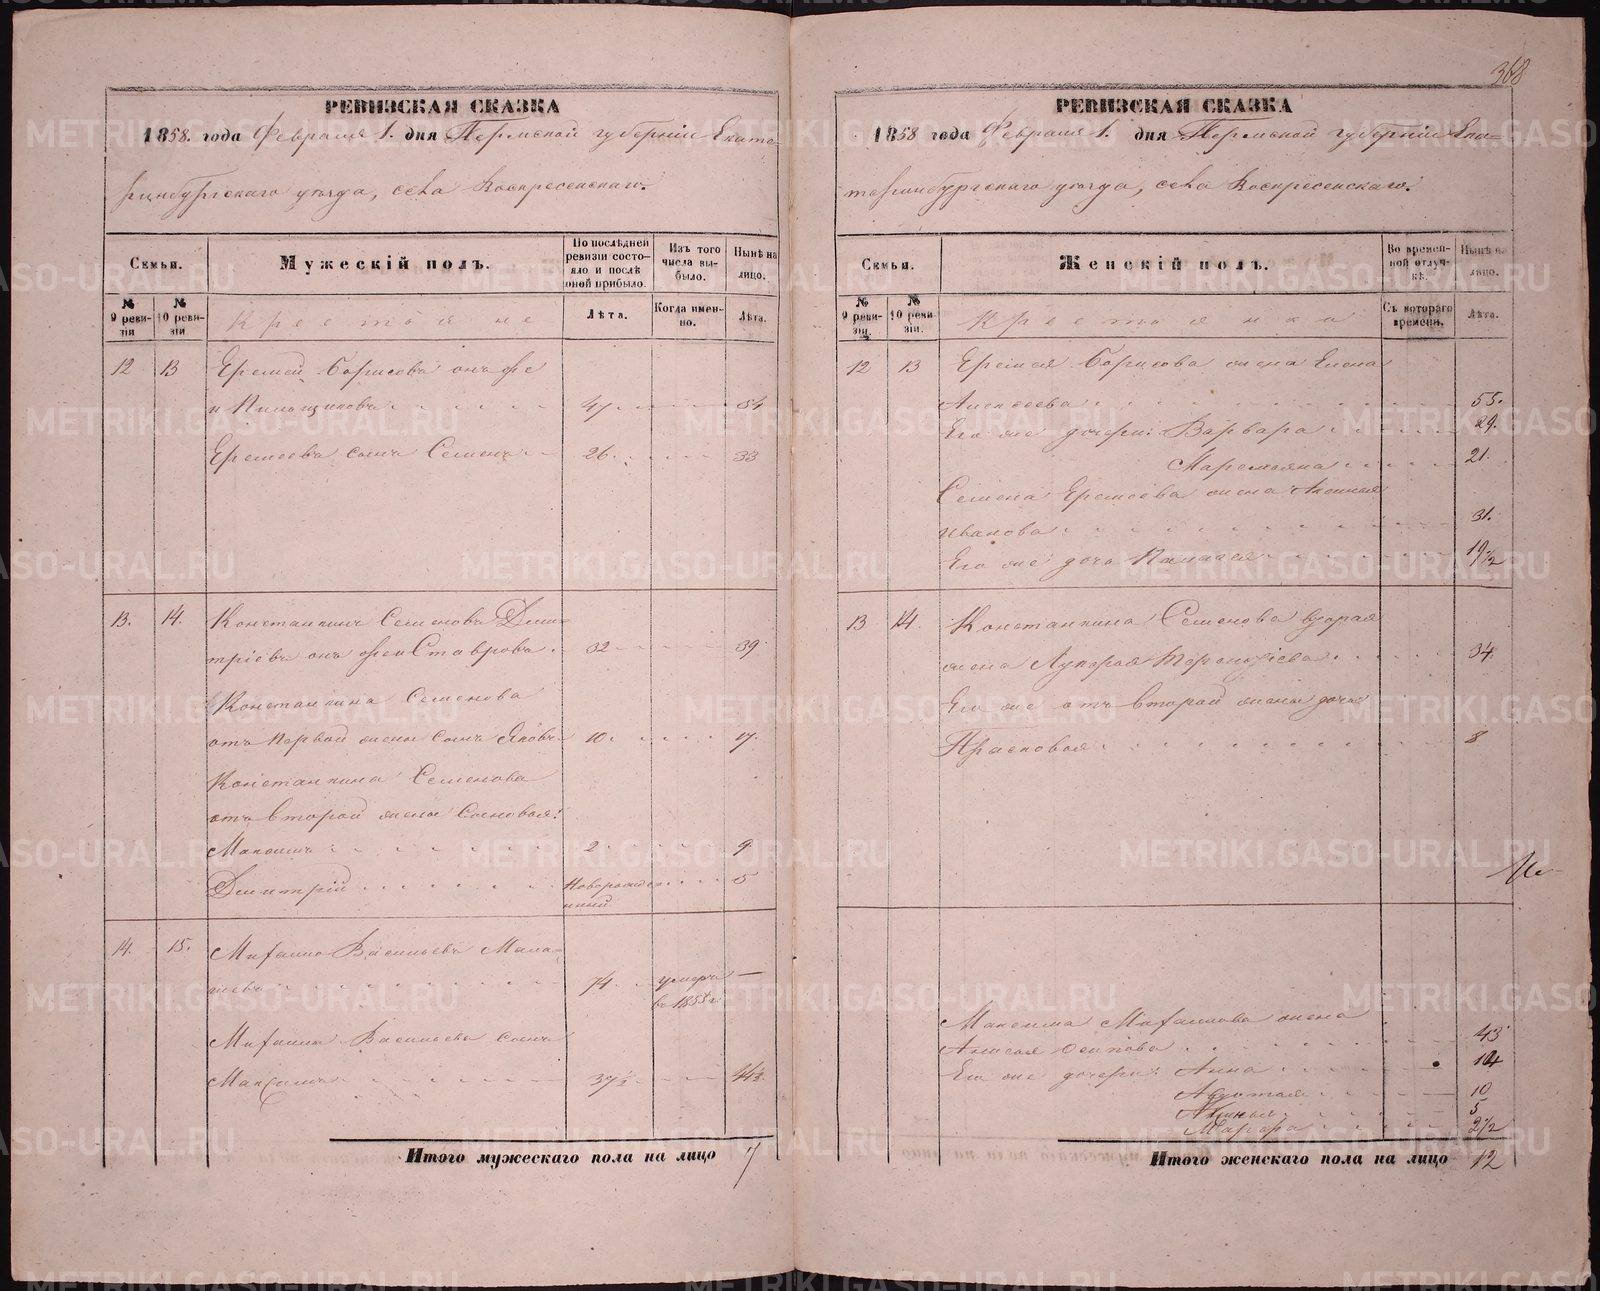 368
РЕВИЗСКАЯ СКАЗКА
1858. года Февраля 1. дня Пермской губернiи Екате-
ринбургскаго уѣзда, села Воскресенскаго.
Семьи.
Мужескiй полъ.
По послѣдней ревизiи состояло и послѣ оной прибыло.
Изъ того числа выбыло.
Нынѣ на лицо.
№ 9 ревизiи
№ 10 ревизiи
Крестьяне
Лѣта.
Когда именно.
Лѣта.
12 13 Еремей Борисовъ онъ же
и Пильщиковъ 47 54
Еремеевъ сынъ Семенъ 26. 33
13. 14. Константинъ Семеновъ Дми-
трiевъ онъ же и Ставровъ. 32 39
Константина Семенова
отъ первой жены сынъ Яковъ 10. 17.
Константина Семенова
отъ второй жены сыновья:
Максимъ 2 9
Димитрiй новорожденный 5
14. 15. Михайло Васильевъ Мала-
74. умеръ —
въ 1855 г.
Михайла Васильева сынъ
Максимъ 37½ 44½
Итого мужескаго пола на лицо 7
РЕВИЗСКАЯ СКАЗКА
1858 года Февраля 1. дня Пермской губернiи Ека-
теринбургскаго уѣзда, села Воскресенскаго.
Семьи.
Женскiй полъ.
Во временной отлучкѣ.
Нынѣ на лицо.
№ 9 ревизiи.
№ 10 ревизiи.
Съ котораго времени.
Лѣта.
12 13 Еремея Борисова жена Елена
Алексеева 55.
Его же дочери: Варвара 29.
Маремьяна 21.
Семена Еремеева жена
Иванова 31.
Его же дочь Палагея
13 14. Константина Семенова вторая
жена Лукерья 34.
Его же отъ второй жены дочь
Прасковья 8
Максима Михайлова жена
Анисья Осипова 43
Его же дочери: Анна 14
Авдотья 10
5
2½
Итого женскаго пола на лицо 12
METRIKI.GASO-URAL.RU